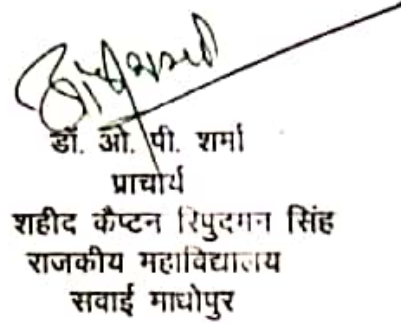 डॉ. ओ. पी. शर्मा
प्राचार्य
शहीद कैप्टन रिपुदमन सिंह
राजकीय महाविद्यालय
सवाई माधोपुर